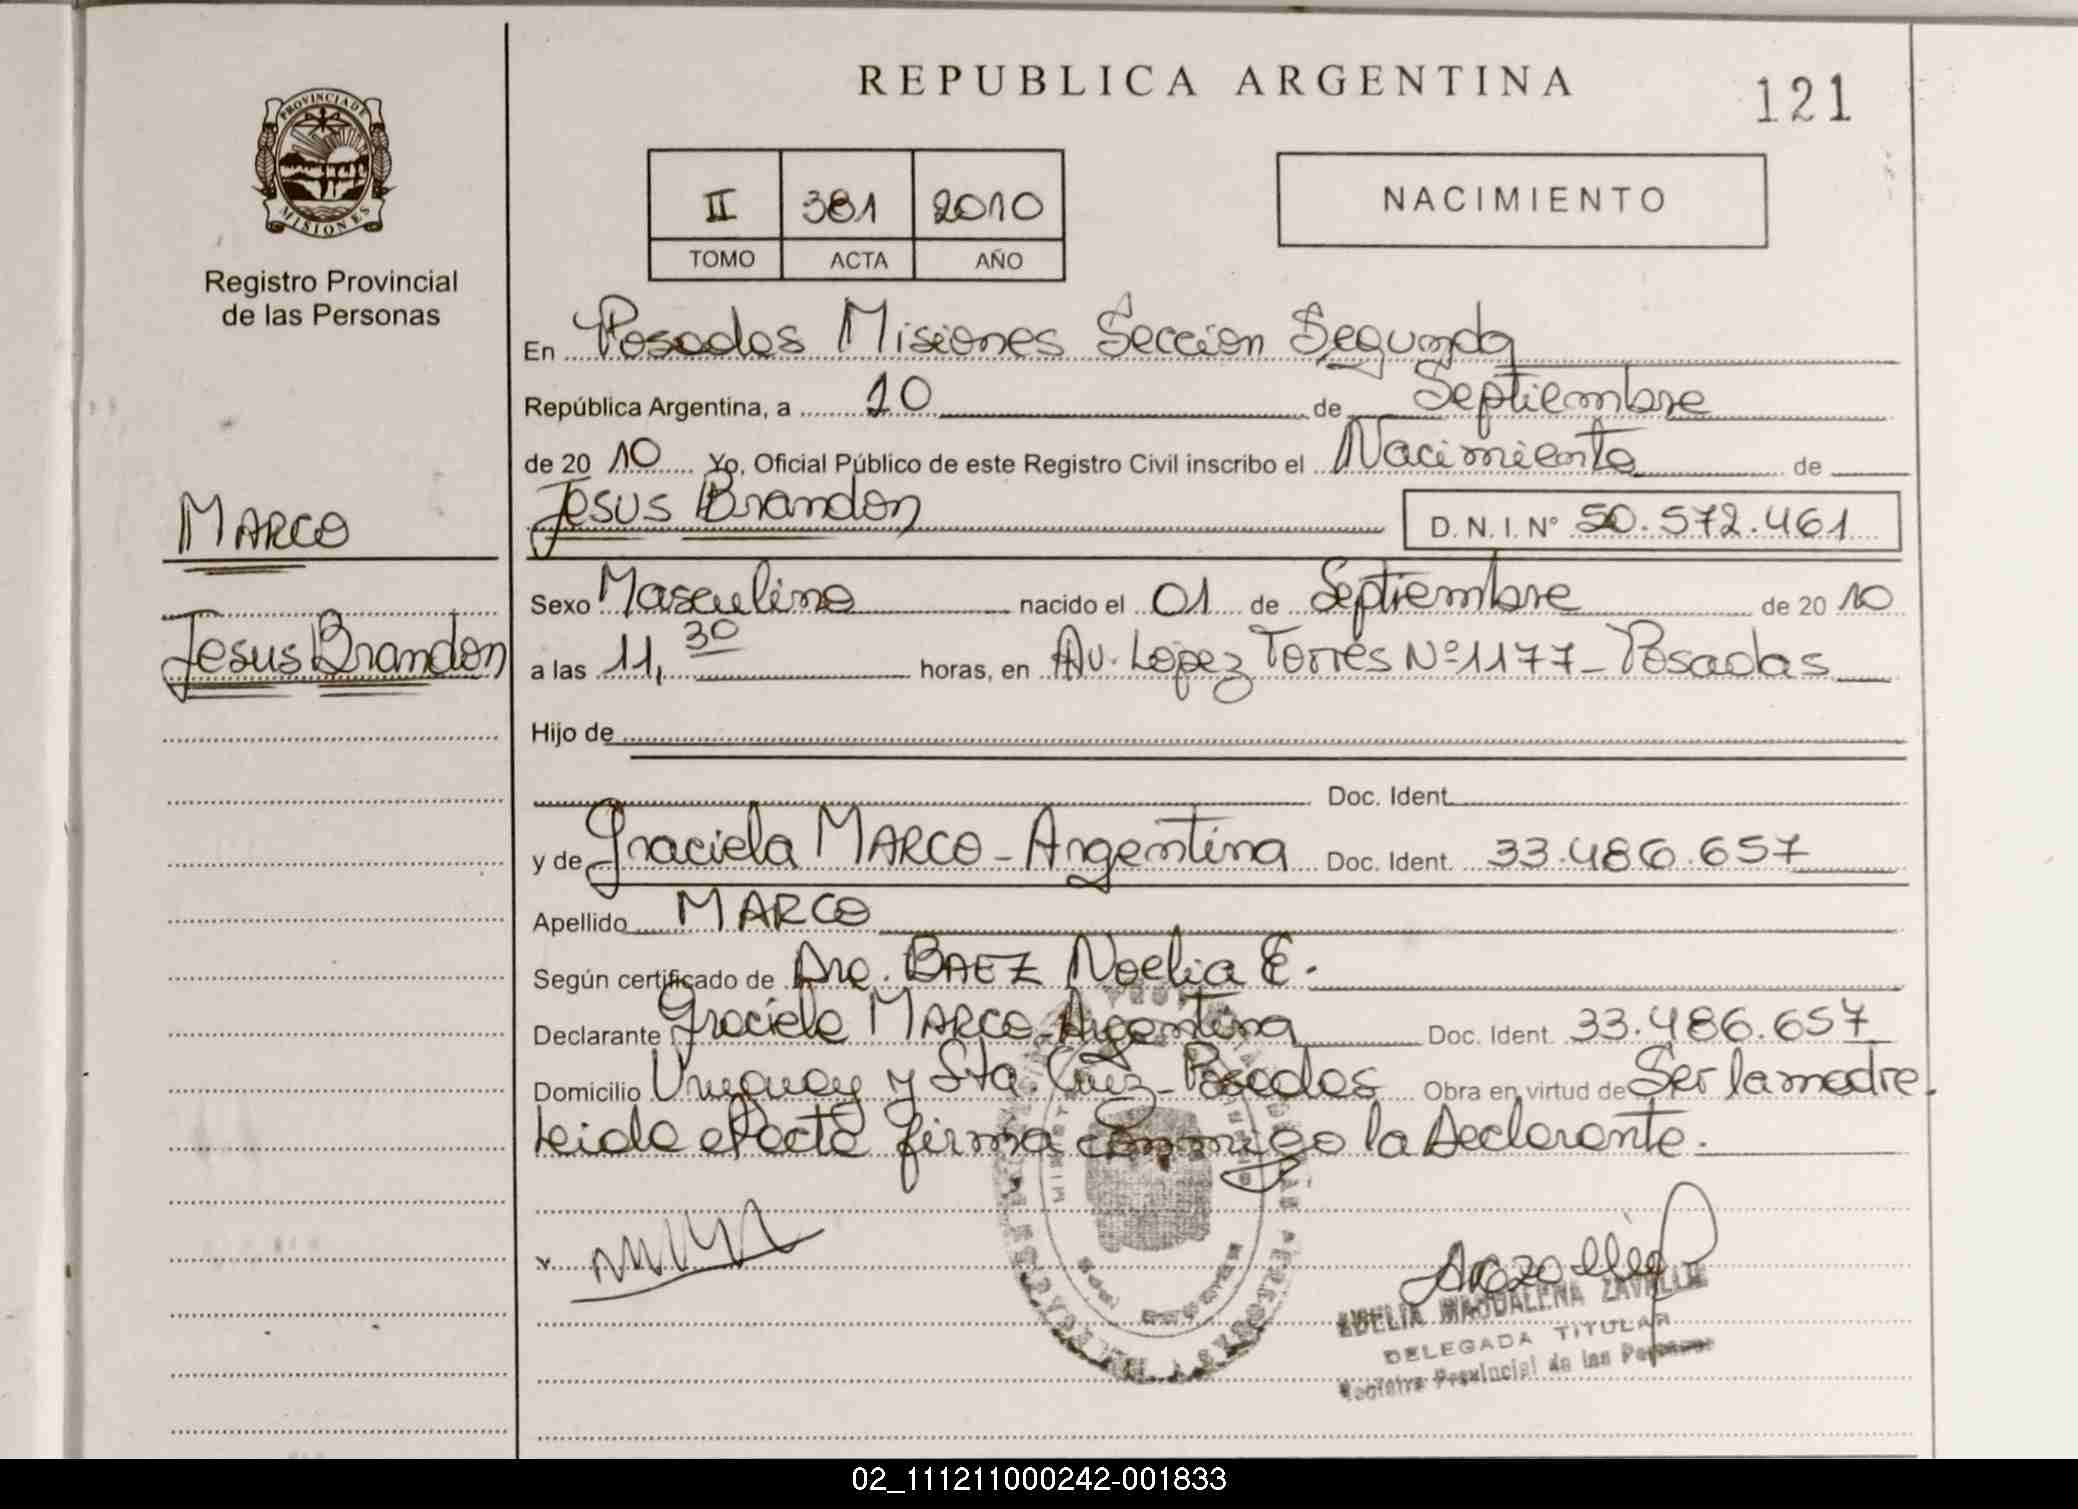 REPUBLICA ARGENTINA
121
PROVINCIA DE
MISIONES
Registro Provincial
de las Personas
II 381 2010
TOMO ACTA AÑO
NACIMIENTO
En Posadas Misiones Sección Segunda
República Argentina, a 10 de Septiembre
de 20 10 Yo, Oficial Público de este Registro Civil inscribo el Nacimiento de
Jesus Brandon D. N. I. Nº 50.572.461
MARCO
Jesus Brandon
Sexo Masculino nacido el 01 de Septiembre de 20 10
a las 11,30 horas, en Av. Lopez Torres Nº 1177 - Posadas
Hijo de
Doc. Ident.
y de Graciela MARCO - Argentina Doc. Ident. 33.486.657
Apellido MARCO
Según certificado de Dra. BAEZ Noelia E.
Declarante Graciela MARCO - Argentina Doc. Ident. 33.486.657
Domicilio Uruguay y Sta. Cruz - Posadas Obra en virtud de Ser la madre.
Leida el acta firma conmigo la Declarante.
ADELIA MAGDALENA ZAVALLIE
DELEGADA TITULAR
Registro Provincial de las Personas
02_111211000242-001833